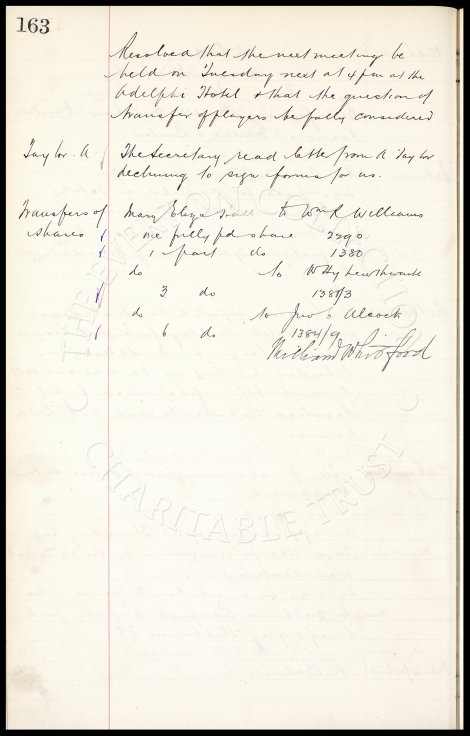 163
Resolved that the next meeting be
held on Tuesday next at 4 pm at the
Adelphi Hotel & that the question of
transfer of players be fully considered
Taylor. A The Secretary read letter from A Taylor
declining to sign forms for us.
Transfers of Mary Eliza to Wm R Williams
shares one fully pd share 2290
1 part do 1380
do to W Hy Lewthwaite
3 do 1381/3
do to Jno Alcock
6 do 1384/9
William Whitford
THE EVERTON COLLECTION
CHARITABLE TRUST